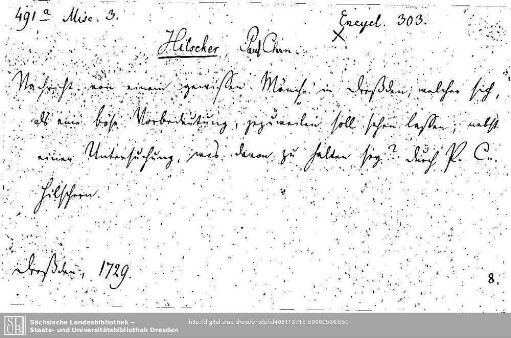 491 a Misc. 3.
Encycl. 303.
Hilscher Paul Chrn.
Nachricht von einem gewissen Mönche in Dreßden, welcher sich,
als eine böse Vorbedeutung, zuweilen soll sehen lassen; nebst
einer Untersuchung, was davon zu halten sey? durch P. C.
Hilschern.
Dreßden, 1729.
8.
SLUB
Sächsische Landesbibliothek –
Staats- und Universitätsbibliothek Dresden